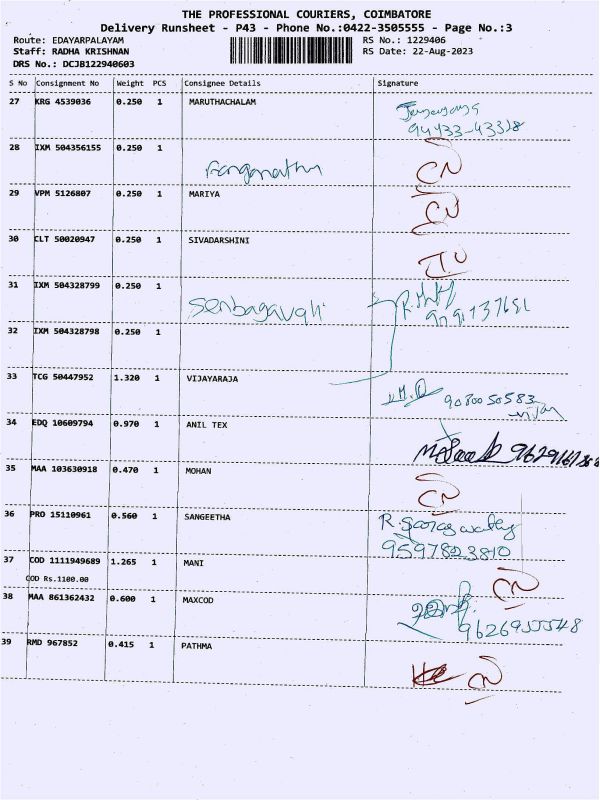 THE PROFESSIONAL COURIERS, COIMBATORE
Delivery Runsheet - P43 - Phone No.:0422-3505555 - Page No.:3
Route: EDAYARPALAYAM RS No.: 1229406
Staff: RADHA KRISHNAN RS Date: 22-Aug-2023
DRS No.: DCJB122940603
S No Consignment No Weight PCS Consignee Details Signature
27 KRG 4539036 0.250 1 MARUTHACHALAM
94433-43318
28 IXM 504356155 0.250 1
CN
29 VPM 5126807 0.250 1 MARIYA CN
30 CLT 50020947 0.250 1 SIVADARSHINI
I.U
31 IXM 504328799 0.250 1
Senbagavali
32 IXM 504328798 0.250 1
33 TCG 50447952 1.320 1 VIJAYARAJA
9080050583
34 EDQ 10609794 0.970 1 ANIL TEX
35 MAA 103630918 0.470 1 MOHAN
CN
36 PRO 15110961 0.560 1 SANGEETHA
9597823810
37 COD 1111949689 1.265 1 MANI
COD Rs.1100.00 CN
38 MAA 861362432 0.600 1 MAXCOD
39 RMD 967852 0.415 1 PATHMA
CN